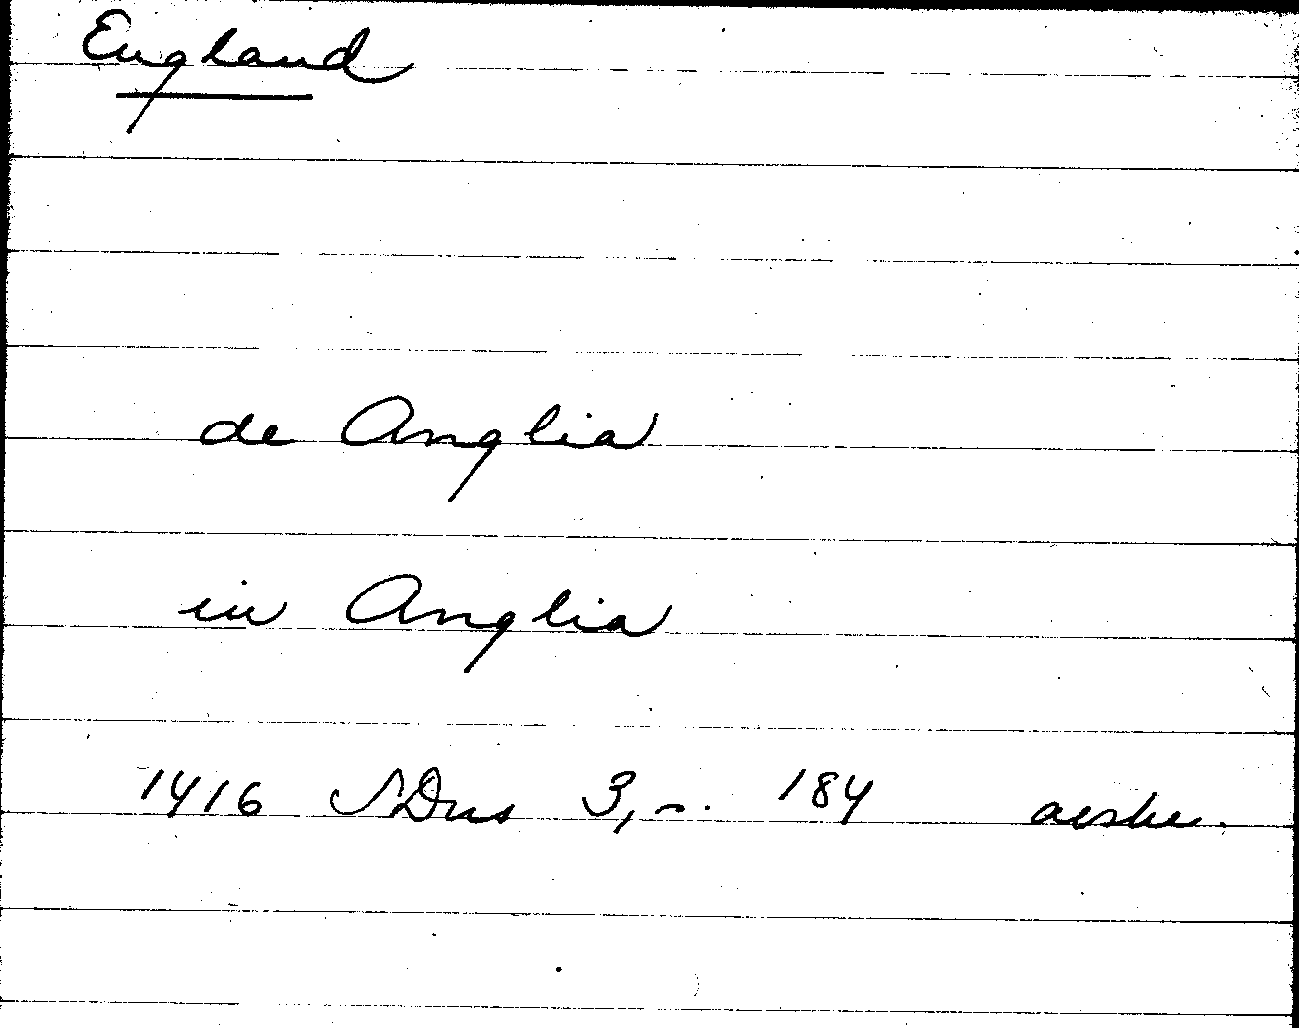 England
de Anglia
in Anglia
1416 NDns 3, n. 184 aeske.